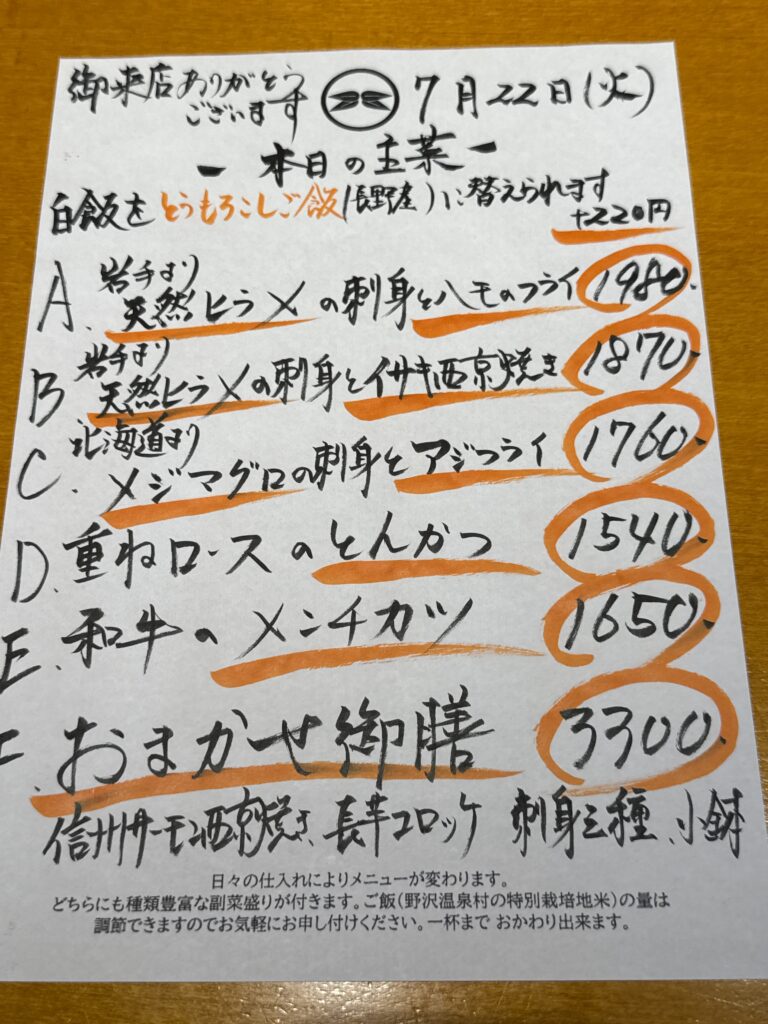 御来店ありがとう
ございます
7月22日(火)
- 本日の主菜 -
白飯をとうもろこしご飯(長野産)に替えられます
+220円
岩手より
A. 天然ヒラメの刺身とハモのフライ 1980.
岩手より
B 天然ヒラメの刺身とイサキ西京焼き 1870.
北海道より
C. メジマグロの刺身とアジフライ 1760.
D. 重ねロースのとんかつ 1540.
E. 和牛のメンチカツ 1650.
F. おまかせ御膳 3300.
信州サーモン西京焼き、長芋コロッケ 刺身三種、小鉢
日々の仕入れによりメニューが変わります。
どちらにも種類豊富な副菜盛りが付きます。ご飯(野沢温泉村の特別栽培地米)の量は
調節できますのでお気軽にお申し付けください。一杯まで おかわり出来ます。